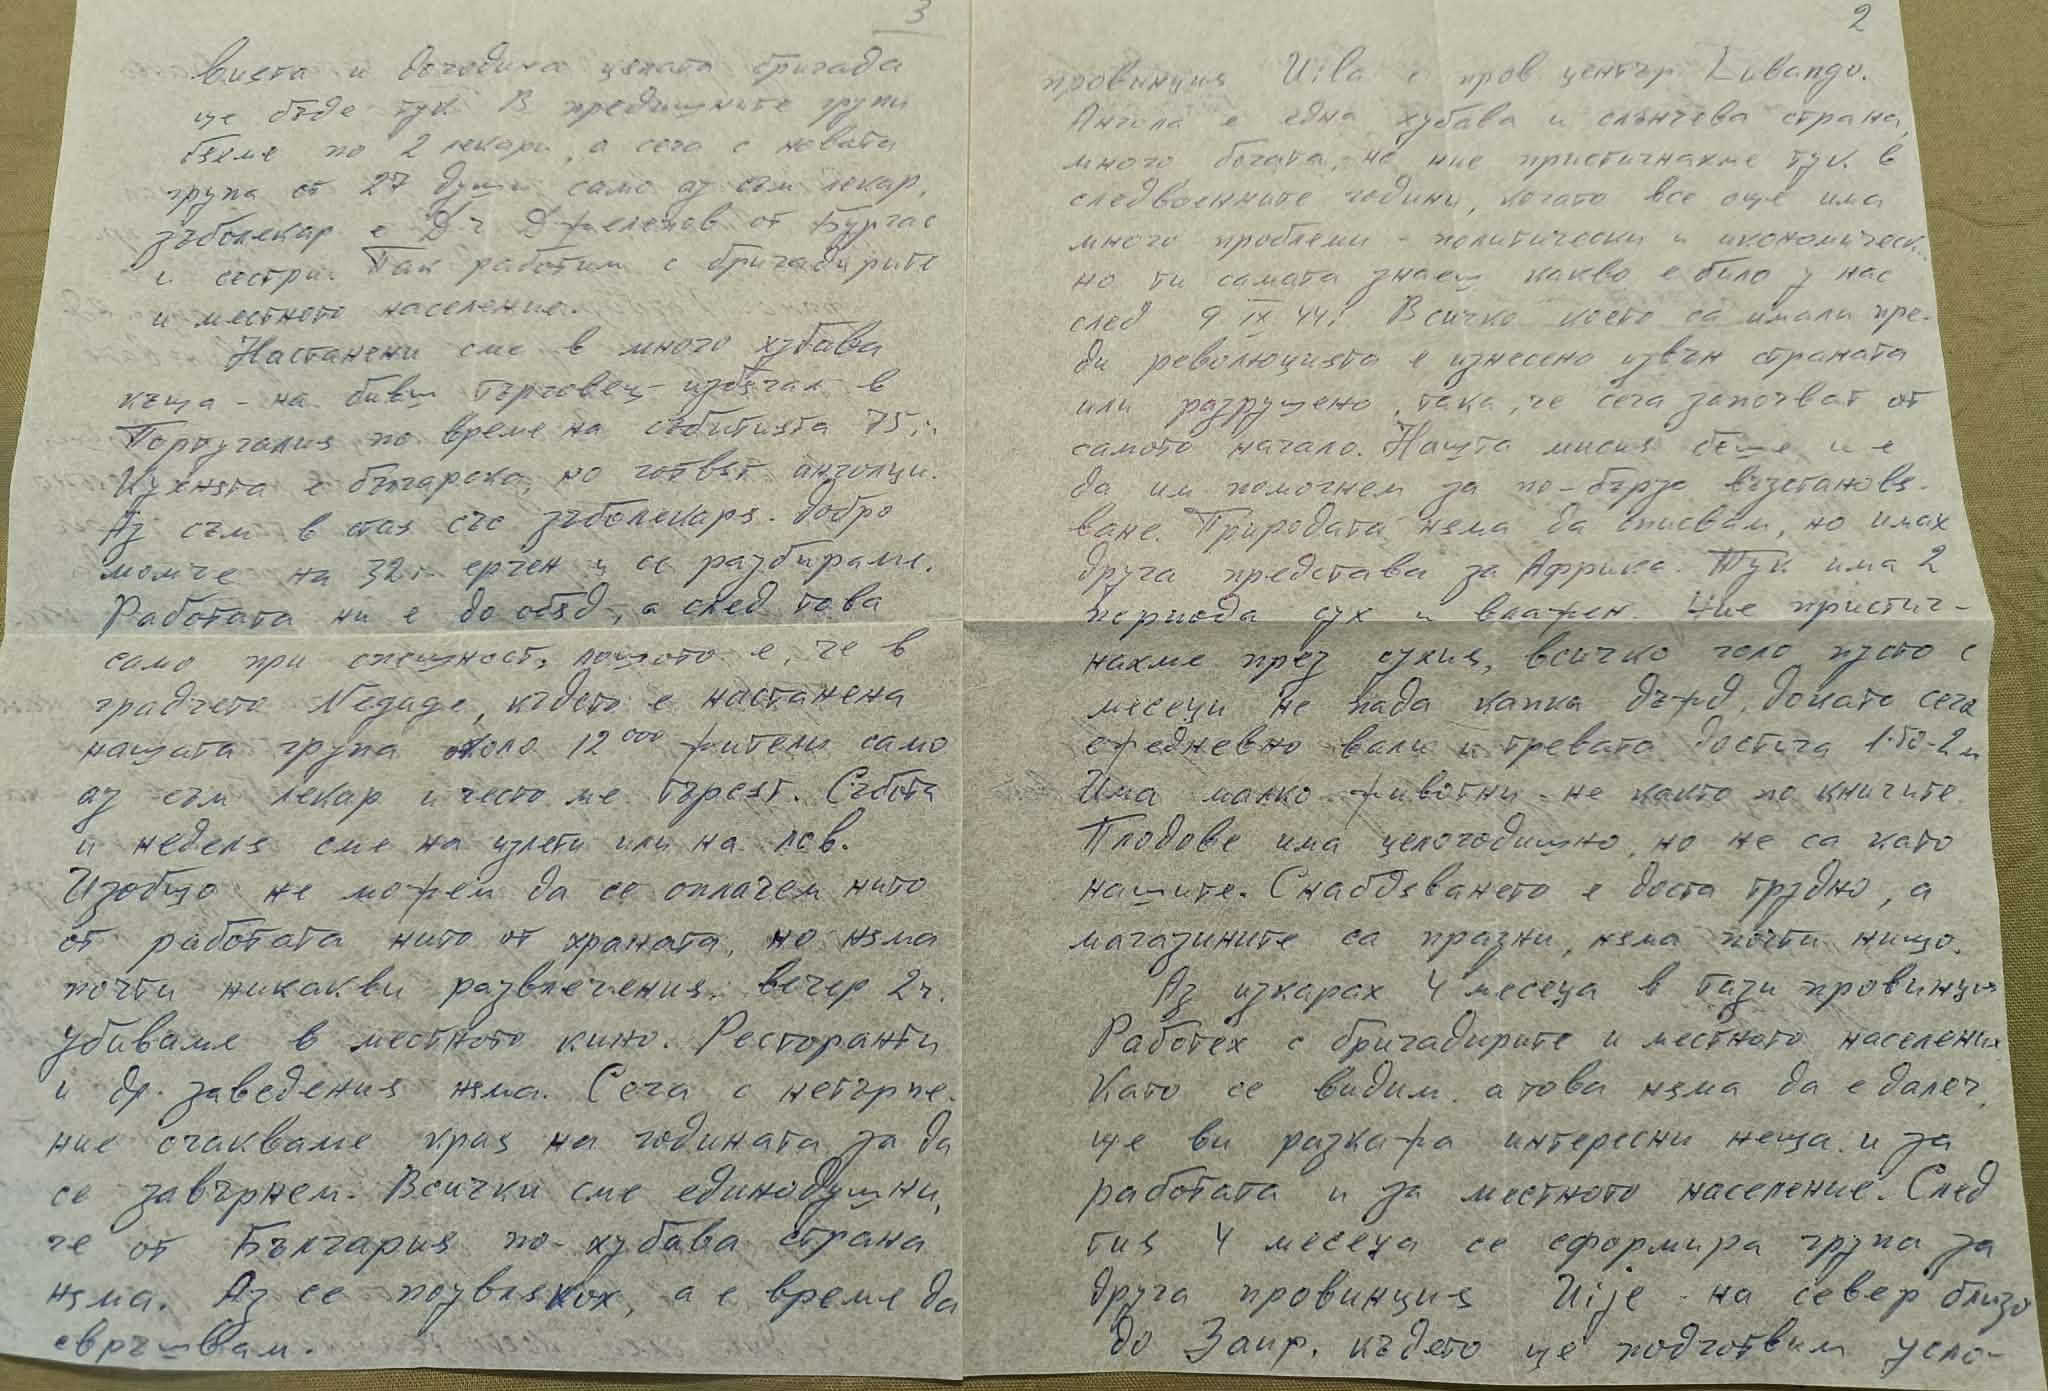 2
провинция Uila с пров център Lubango.
Ангола е една хубава и слънчева страна,
много богата, но ние пристигнахме тук в
следвоенните години, когато все още има
много проблеми - политически и икономическ.
но ти самата знаеш какво е било у нас
след 9 IX 44г. Всичко което са имали пре-
ди революцията е изнесено извън страната
или разрушено, така, че сега започват от
самото начало. Нашта мисия беше и е
да им помогнем за по-бързо възстановя-
ване. Природата няма да описвам, но имах
друга представа за Африка. Тук има 2
периода сух и влажен. Ние пристиг-
нахме през сухия, всичко голо пусто с
месеци не пада капка дъжд, докато сега
ежедневно вали и тревата достига 1·50-2м
Има малко животни - не както по книгите.
Плодове има целогодишно, но не са като
нашите. Снабдяването е доста трудно, а
магазините са празни, няма почти нищо.
Аз изкарах 4 месеца в тази провинция
Работех с бригадирите и местното население
Като се видим, а това няма да е далеч,
ще ви разкажа интересни неща и за
работата и за местното население. След
тия 4 месеца се сформира група за
друга провинция Uije - на север близо
до Заир, където ще подготвим усло-
3
вията и догодина цялата бригада
ще бъде тук. В предишните групи
бяхме по 2 лекари, а сега с новата
група от 27 души само аз съм лекар,
зъболекар е Д-ч Джелепов от Бургас
и сестри. Так работим с бригадирите
и местното население.
Настанени сме в много хубава
къща - на бивш търговец - избягал в
Португалия по време на събитията 75 г.
Кухнята е българска, но готвят анголци.
Аз съм в стая със зъболекаря - добро
момче на 32 г. ерген и се разбираме.
Работата ни е до обяд, а след това
само при спешност, лошото е, че в
градчето Negage, където е настанена
нашата група около 12000 жители само
аз съм лекар и често ме търсят. Събота
и неделя сме на излети или на лов.
Изобщо не можем да се оплачем нито
от работата нито от храната, но няма
почти никакви развлечения. вечер 2ч.
убиваме в местното кино. Ресторанти
и др. заведения няма. Сега с нетърпе-
ние очакваме края на годината за да
се завърнем. Всички сме единодушни,
че от България по-хубава страна
няма. Аз се поувлякох, а е време да
свръшвам.